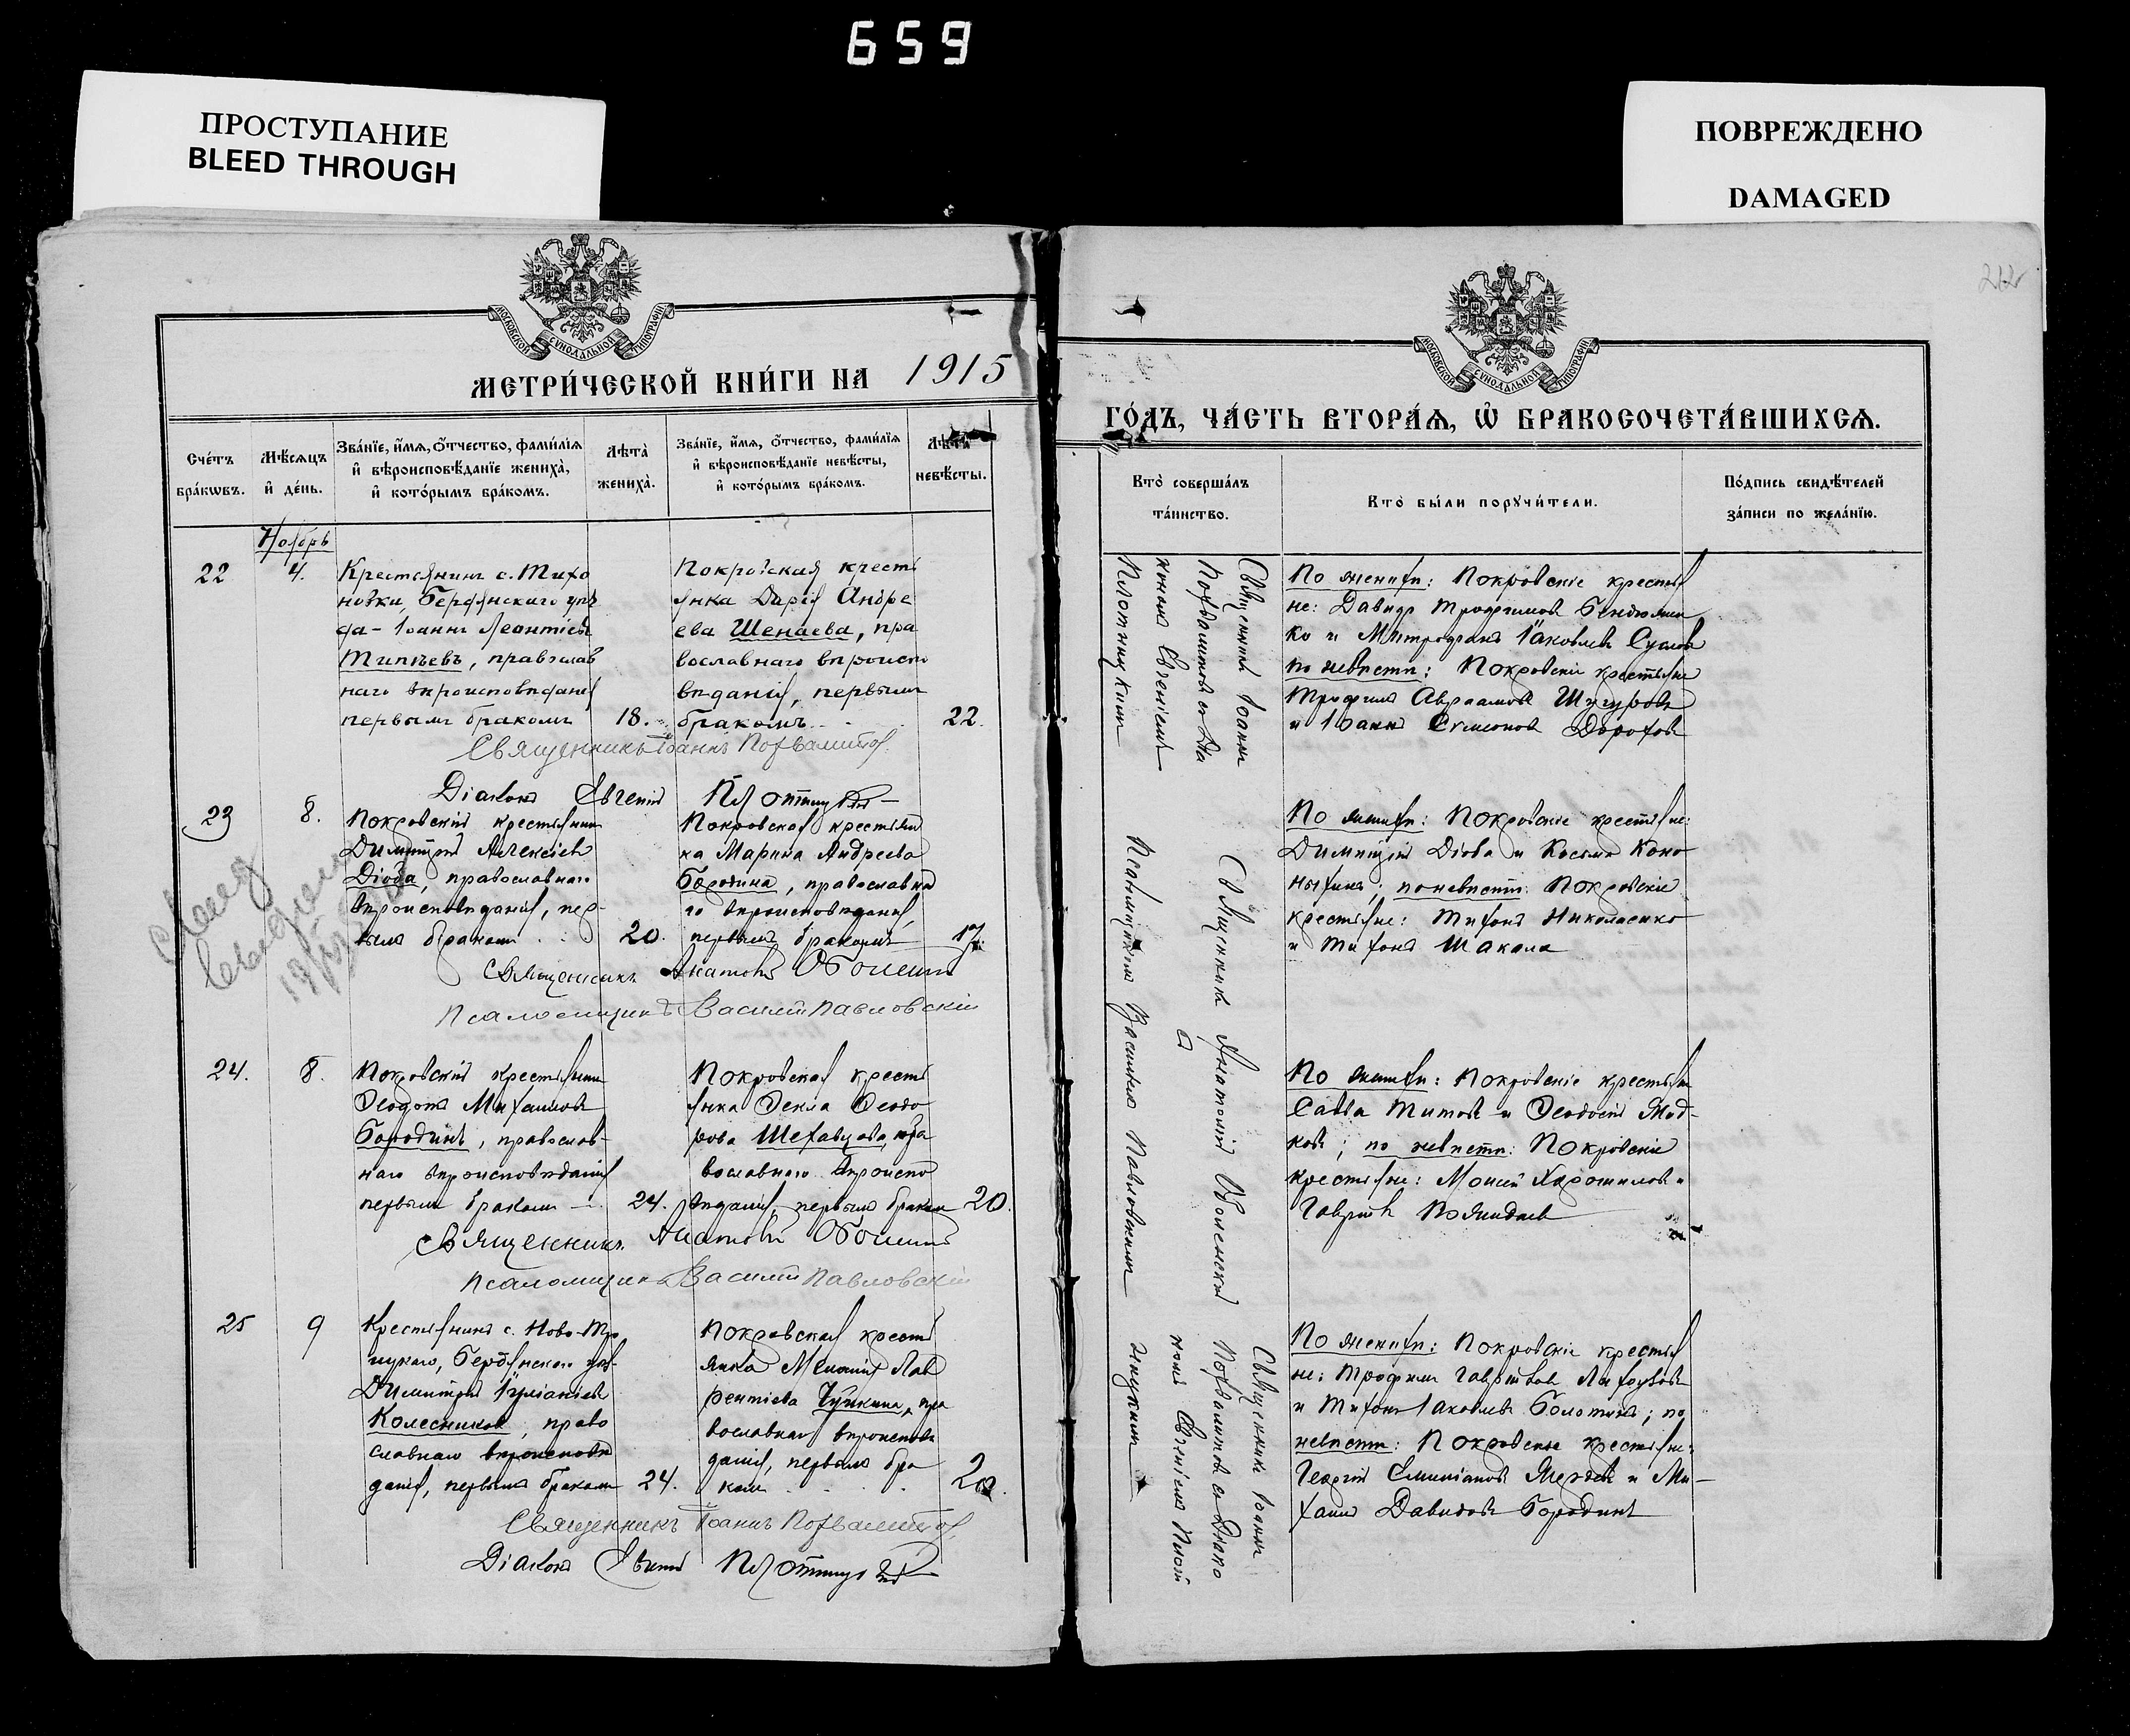 659
ПРОСТУПАНИЕ
BLEED THROUGH
ПОВРЕЖДЕНО
DAMAGED
МОСКОВСКОЙ СѴНОДАЛЬНОЙ ТИПОГРАФІИ
МЕТРИ́ЧЕСКОЙ КНИ́ГИ НА 1915
Сче́тъ бра́кѡвъ.
Мѣ́сяцъ и҆ де́нь.
Зва́нїе, и҆́мѧ, ѻ҆́тчество, фами́лїѧ
и҆ вѣроисповѣ́данїе жениха̀,
и҆ кото́рымъ бра́комъ.
Лѣта̀ жениха̀.
Зва́нїе, и҆́мѧ, ѻ҆́тчество, фами́лїѧ
и҆ вѣроисповѣ́данїе невѣ́сты,
и҆ кото́рымъ бра́комъ.
Лѣта̀ невѣ́сты.
Ноябрь
22
4.
Крестьянинъ с. Тихо
новки, Бердянскаго уѣз
да - Іоаннъ Леонтіев
Типѣевъ, православ
наго вѣроисповѣданія
первымъ бракомъ
18.
Покровская кресть
янка Дарія Андре
ева Шенаева, пра
вославнаго вѣроиспо
вѣданія, первымъ
бракомъ
22.
Священникъ Іоаннъ Похвалитов.
Діаконъ Евгеній
23
8.
Покровскій крестьянин
Димитрій Алексіев
Діоба, православнаго
вѣроисповѣданія, пер-
вымъ браком
20.
Покровская крестьян
ка Марина Андреева
Бородина, православна
го вѣроисповѣданія,
первымъ бракомъ
17.
Священникъ Анатолій Оболенскій
Псаломщикъ Василій Павловскій
24.
8.
Покровскій крестьянин
Ѳеодотъ Михаилов
Бородинъ, православ-
наго вѣроисповѣданія
первым браком
24.
Покровская кресть
янка Ѳекла Ѳеодо
рова Шехавцова, пра
вославнаго вѣроиспо
вѣданія, первымъ браком
20.
Священникъ Анатолій Оболенскій
Псаломщикъ Василій Павловскій
25
9
Крестьянинъ с. Ново-Тро
ицкаго, Бердянскаго уѣз-
Димитрій
Колесников, право
славнаго вѣроисповѣ
данія, первымъ браком
24.
Покровская кресть
янка Меланія Лав
рентіева Чуйкина, пра
вославнаго вѣроисповѣ
данія, первымъ бра
ком
20.
Священникъ Іоаннъ Похвалитов.
Діаконъ Евгеній
ГО́ДЪ, ЧА́СТЬ ВТОРА́Ѧ, Ѽ БРАКОСОЧЕТА́ВШИХСѦ.
Кто̀ соверша́лъ
та́инство.
Кто̀ бы́ли порꙋчи́тели.
По́дпись свидѣ́телей
за́писи по жела́нїю.
Священник Іоанн
Похвалитов с Діа
коном Евгеніем
Плотницким
По женихѣ: Покровскіе крестья
не: Давидъ Трофимов Бендюжен
ко и Митрофанъ Іаковлев Суслов
по невѣстѣ: Покровскіе крестьяне
Трофимъ Авраамов Шугуров
и Іоаннъ Симеонов Дорохов
Священник Анатолій Оболенскій
с
Псаломщиком Василіем Павловским
По женихѣ: Покровскіе крестьяне:
Димитрій Діоба и Косьма Коно
ныхинъ; по невѣстѣ: Покровскіе
крестьяне: Тихонъ Николаенко
и Тихонъ Шакала
По женихѣ: Покровскіе крестьян
Савва Титов и Ѳеодосій
ков; по невѣстѣ: Покровскіе
крестьяне: Моисей Харошилов и
Гавріил
Священник Іоанн
Похвалитов с Діако
ном Евгеніем Плот
ницким
По женихѣ: Покровскіе крестья
не: Трофим Гавріилов
и Тихон Іаковлев Болотинъ; по
невѣстѣ: Покровскіе крестьяне:
Георгій Емиліанов и Ми-
хаил Давидов Бородинъ